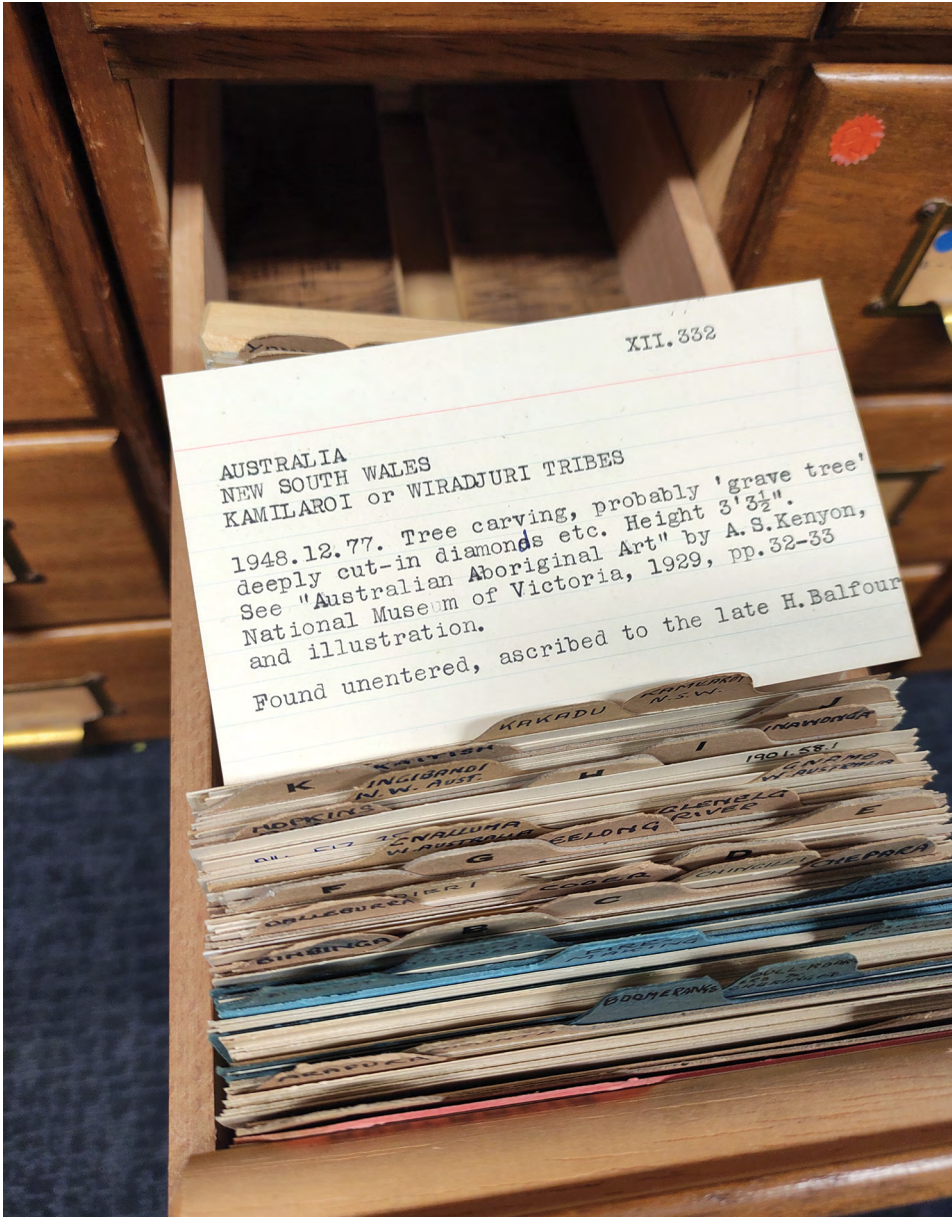 XII.332
AUSTRALIA
NEW SOUTH WALES
KAMILAROI or WIRADJURI TRIBES
1948.12.77. Tree carving, probably 'grave tree'
deeply cut-in diamonds etc. Height 3'3½".
See "Australian Aboriginal Art" by A.S.Kenyon,
National Museum of Victoria, 1929, pp.32-33
and illustration.
Found unentered, ascribed to the late H.Balfour
KAMILAROI
N.S.W.
KAKADU
J
KAITISH
K
INAWONGA
I
INGIBANDI
N.W. AUST.
H
1901.58.1
GNAMO
W. AUSTRALIA
HOPKINS
GLENELG
RIVER
E
GNALLUMA
W. AUSTRALIA
GEELONG
G
D
F
DIERI
COOPER
CHEPARA
DALLEBURRA
C
B
BINBINGA
BOOMERANGS